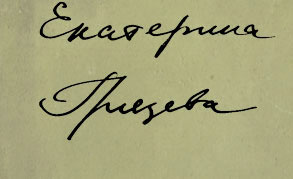 Екатерина
Грицева